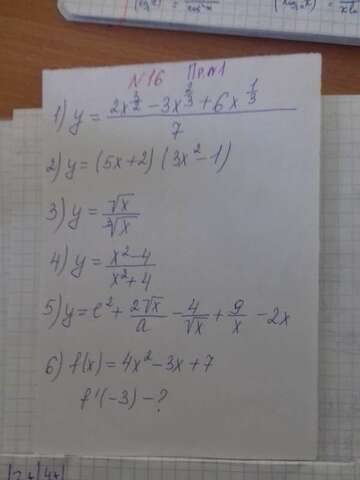 N16 Пр.N1
1) y = (2x^(3/2) − 3x^(2/3) + 6x^(1/3)) / 7
2) y = (5x+2) (3x² − 1)
3) y = √x / ∛x
4) y = (x² − 4) / (x² + 4)
5) y = e² + 2√x/a − 4/√x + 9/x − 2x
6) f(x) = 4x² − 3x + 7
f'(−3) − ?